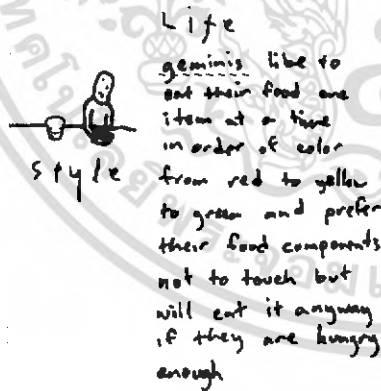 Life
geminis like to
eat their food one
item at a time
in order of color
from red to yellow
to green and prefer
their food components
not to touch but
will eat it anyway
if they are hungry
enough
style